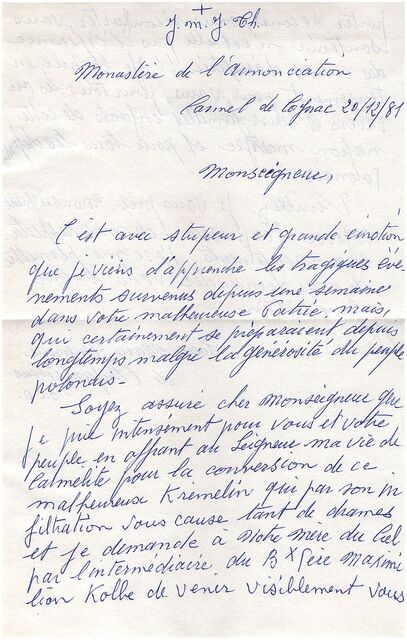 +
J. M. J. Th.
Monastère de l'Annonciation
Carmel de Cognac 20/12/81
Monseigneur,
C'est avec stupeur et grande émotion
que je viens d'apprendre les tragiques évé-
nements survenus depuis une semaine
dans votre malheureuse Patrie, mais,
qui certainement se préparaient depuis
longtemps malgré la générosité du peuple
polonais-
Soyez assuré cher Monseigneur que
je prie intensément pour vous et votre
peuple en offrant au Seigneur ma vie de
Carmelite pour la conversion de ce
malheureux Kremelin qui par son in
filtration vous cause tant de drames
et je demande à Notre Mère du Ciel
par l'intermédiaire du B x Père Maximi
lion Kolbe de venir visiblement vous